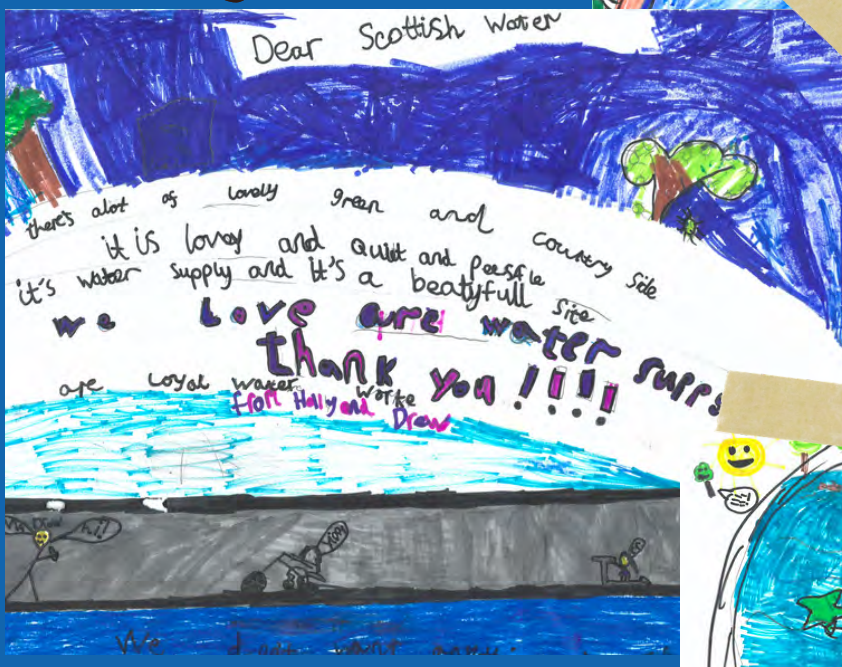 Dear Scottish Water
there's alot of lovely green and country side
it is lovey and quiit and
it's water supply and it's a beatyfull site
we Love are water supps
thank you!!!!
are Loyal water worke
from Holly and Drew
hi!
We